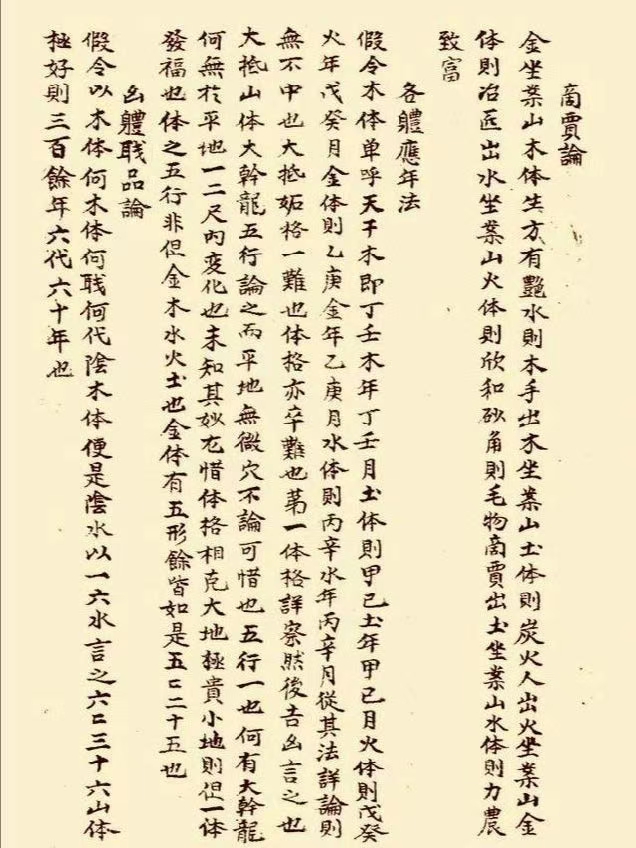 商賈論
金坐案山木体生方有艷水則木手出木坐案山土体則炭火人出火坐案山金
体則冶匠出水坐案山火体則欣和砂角則毛物商賈出土坐案山水体則力農
致富
各體應年法
假令木体单呼天干木即丁壬木年丁壬月土体則甲己土年甲己月火体則戊癸
火年戊癸月金体則乙庚金年乙庚月水体則丙辛水年丙辛月從其法詳論則
無不中也大抵妬格一難也体格亦卒難也苐一体格詳察然後吉凶言之也
大抵山体大幹龍五行論之而平地無微穴不論可惜也五行一也何有大幹龍
何無於平地一二尺內変化也未知其妙尤惜体格相克大地極貴小地則但一体
發福也体之五行非但金木水火土也金体有五形餘皆如是五五二十五也
凶體職品論
假令以木体何木体何職何代陰木体便是陰水以一六水言之六六三十六山体
極好則三百餘年六代六十年也